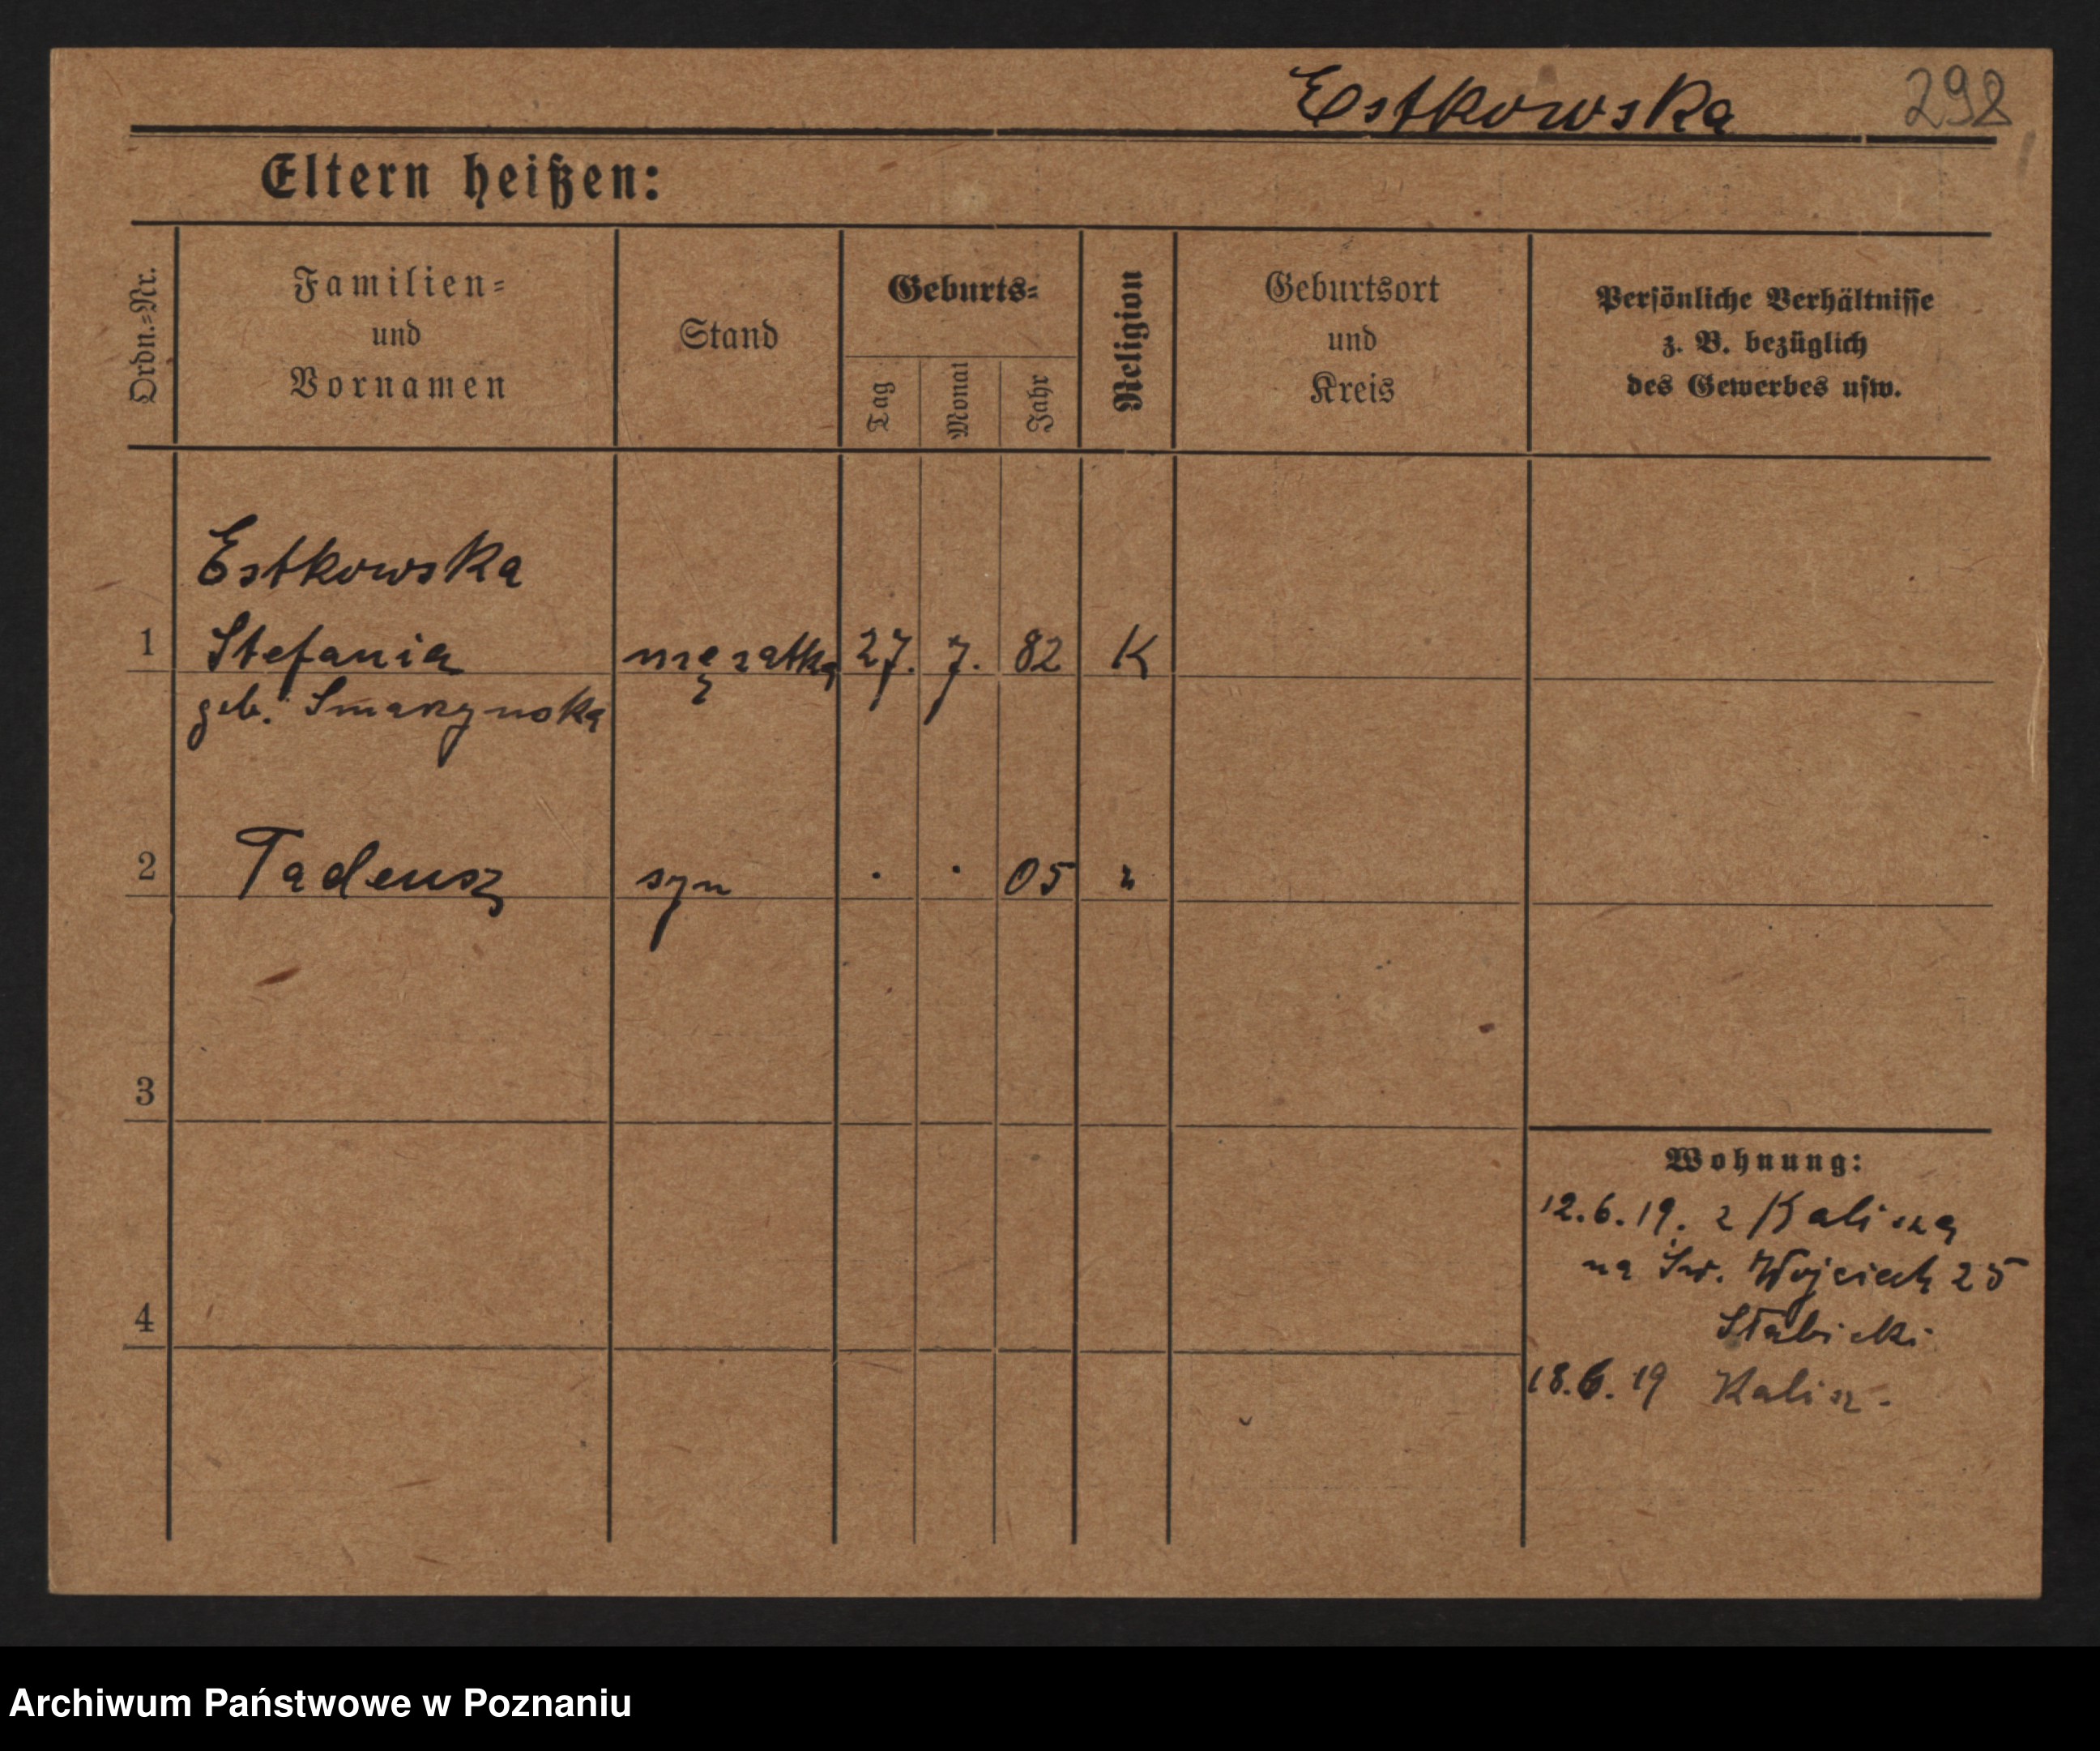 Estkowska 298
Eltern heißen:
Ordn.=Nr.
Familien=
und
Vornamen
Stand
Geburts=
Tag
Monat
Jahr
Religion
Geburtsort
und
Kreis
Persönliche Verhältnisse
z. B. bezüglich
des Gewerbes usw.
Estkowska
1 Stefania mężatka 27. 7. 82 K
geb.
2 Tadeusz syn . . 05 "
3
Wohnung:
12.6.19. z Kalisza
na Św. Wojciech 25
4
18.6.19 Kalisz -
Archiwum Państwowe w Poznaniu